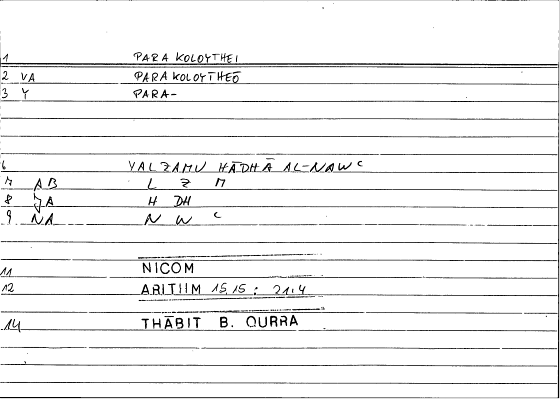 1 PARAKOLOYTHEI
2 VA PARAKOLOYTHEŌ
3 Y PARA-
6 YALZAMU HĀDHĀ AL-NAWᶜ
7 AB L Z M
8 JA H DH
9 NA N W ᶜ
11 NICOM
12 ARITIIM 15,15 : 21,4
14 THĀBIT B. QURRA